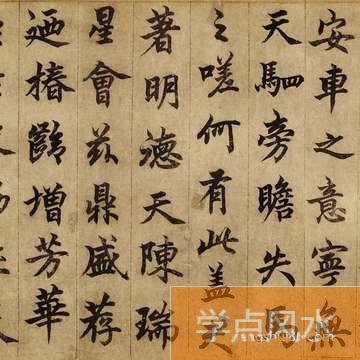 安車之意寧無
天駟旁瞻失馬
之嗟何有此蓋
著明天陳瑞
星會茲鼎盛荐
迺椿齡增芳華
学点风水